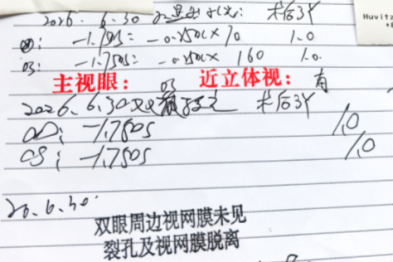 Huvitz
2026.6.30 术后3Y
OD: -1.75DS= -0.25DC×70 1.0
OS: -1.75DS= -0.25DC×160 1.0
主视眼: OS 近立体视: 有
2026.6.30 术后3Y
OD: -1.75DS 1.0
OS: -1.75DS 1.0
26.6.30.
双眼周边视网膜未见
裂孔及视网膜脱离